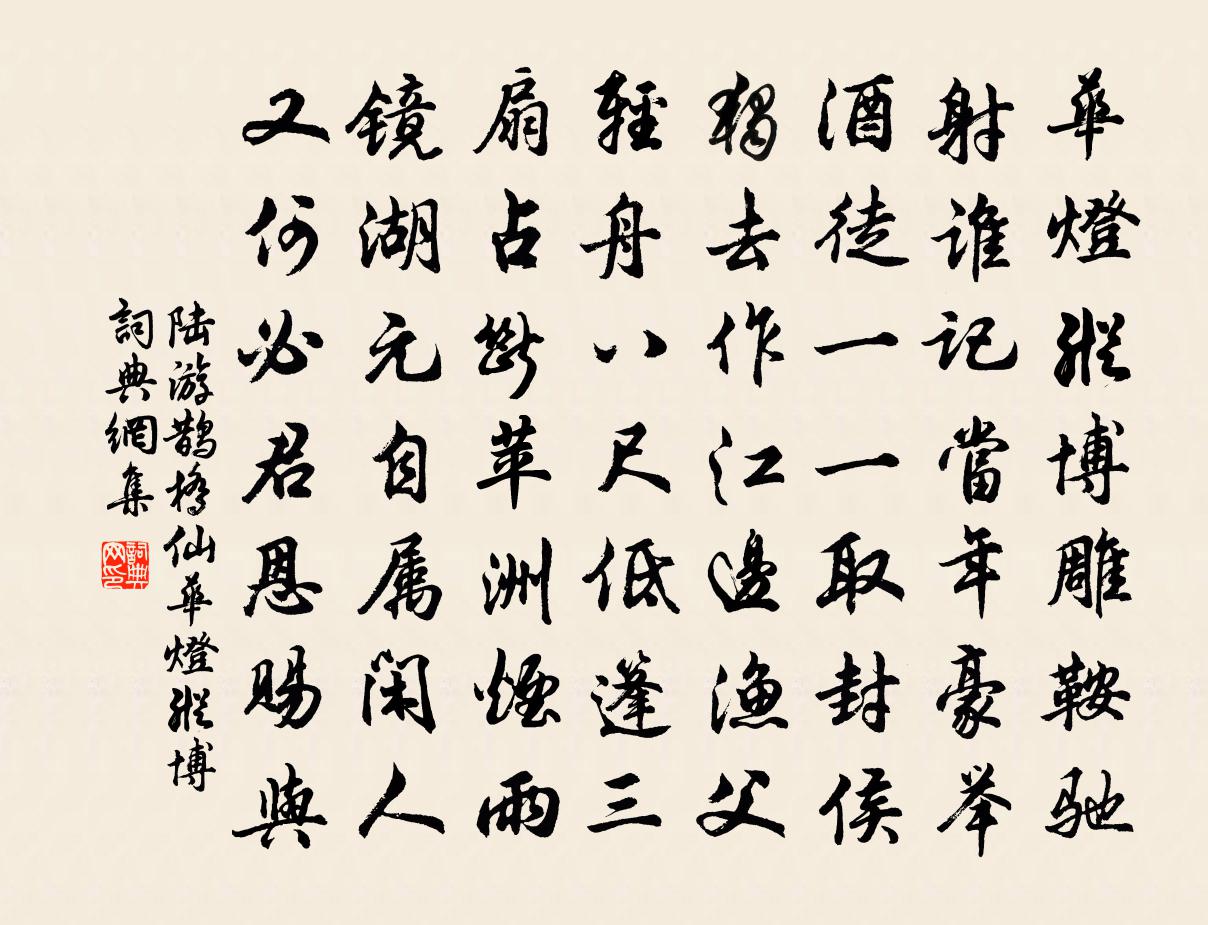 華燈縱博雕鞍馳
射誰記當年豪举
酒徒一一取封侯
獨去作江邊漁父
輕舟八尺低篷三
扇占斷苹洲煙雨
镜湖元自属閑人
又何必君恩賜與
陆游鵲橋仙華燈縱博
詞典網集
詞典网印